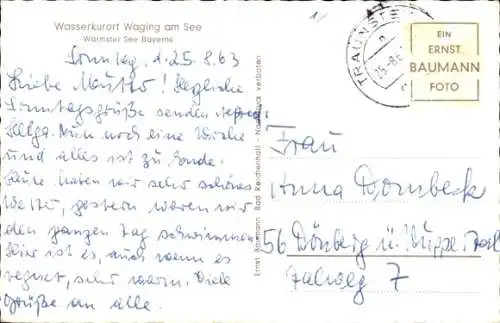 Wasserkurort Waging am See
Wärmster See Bayerns
Sonntag, d. 25.8.63
Liebe Mutter! Herzliche
Sonntagsgrüße senden Alfred,
Helga. Nun noch eine Woche
und alles ist zu Ende.
Heute haben wir sehr schönes
Wetter, gestern waren wir
den ganzen Tag schwimmen.
Hier ist es, auch wenn es
regnet, sehr warm. Viele
Grüße an alle.
Ernst Baumann Bad Reichenhall - Nachdruck verboten
TRAUNSTE
25.-8.6
EIN
ERNST
BAUMANN
FOTO
Frau
Anna Dornbeck
56 Dönberg ü. Wuppertal
Talweg 7